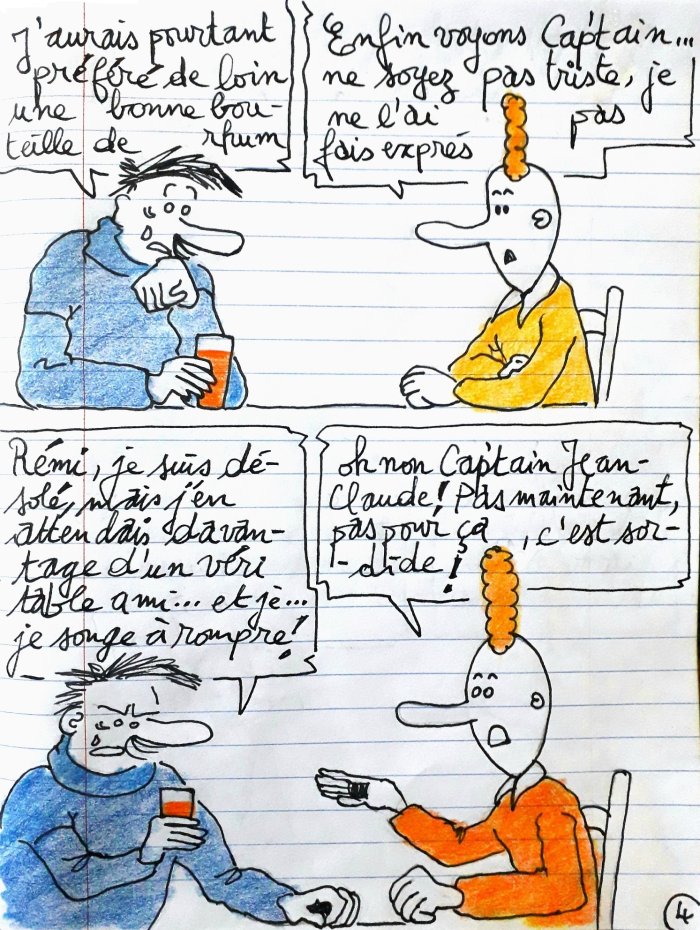 J'aurais pourtant
préféré de loin
une bonne bou-
teille de rhum
Enfin voyons Cap'tain...
ne soyez pas triste, je
ne l'ai pas
fais exprés
Rémi, je suis dé-
solé, mais j'en
attendais davan-
tage d'un véri
table ami... et je...
je songe à rompre!
oh non Cap'tain Jean-
Claude! Pas maintenant,
pas pour ça, c'est sor-
-dide!
4